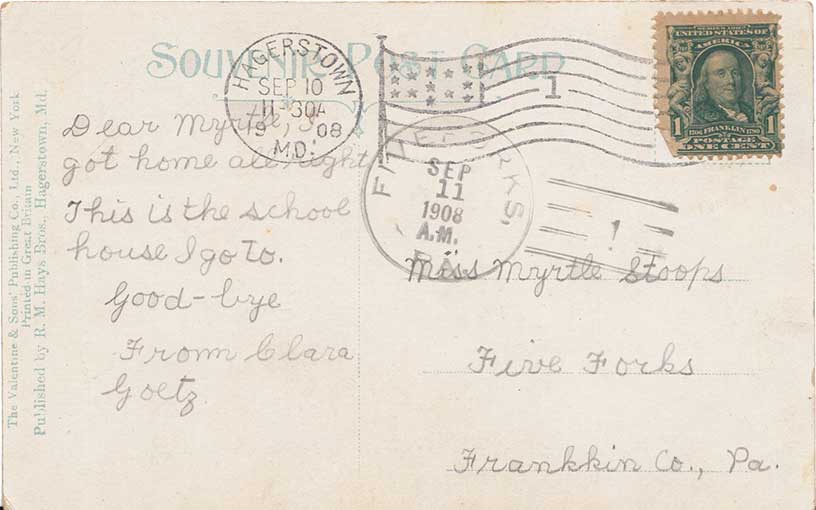 SOUVENIR POST CARD
HAGERSTOWN
SEP 10
11-30A
19 08
MD.
1
SERIES 1902
UNITED STATES OF
AMERICA
1706 FRANKLIN 1790
1 POSTAGE 1
ONE CENT
FIVE FORKS,
SEP
11
1908
A.M.
PA.
1
Dear Myrtle, I
got home all right
This is the school
house I go to.
Good-bye
From Clara
Goetz
Miss Myrtle Stoops
Five Forks
Frankkin Co., Pa.
The Valentine & Sons' Publishing Co., Ltd., New York
Printed in Great Britain
Published by R. M. Hays Bros., Hagerstown, Md.